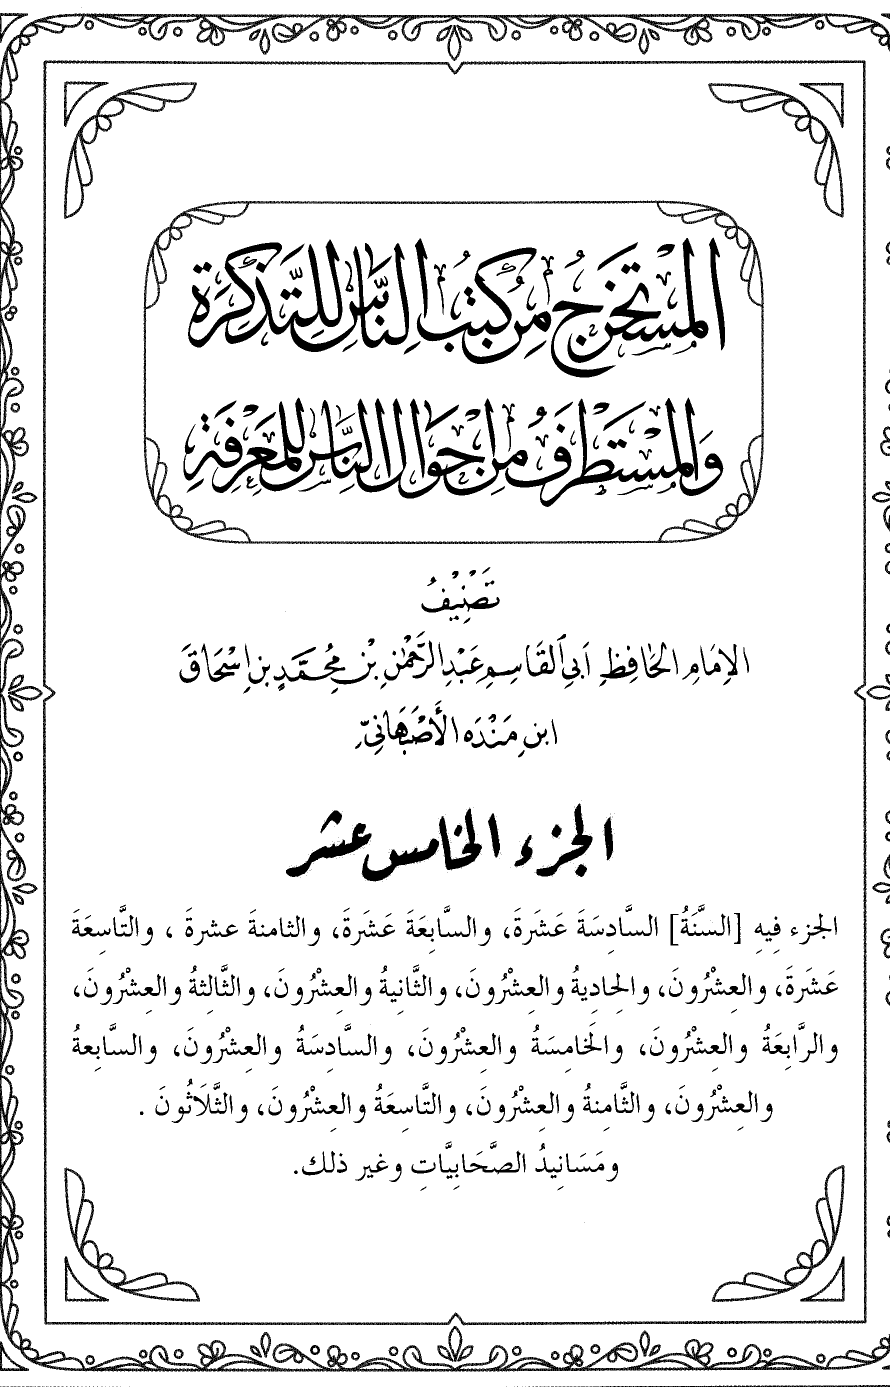 المُسْتَخْرَجُ مِنْ كُتُبِ النَّاسِ لِلتَّذْكِرَةِ
وَالمُسْتَطْرَفُ مِنْ أَحْوَالِ النَّاسِ لِلْمَعْرِفَةِ
تَصْنِيْفُ
الإِمَامِ الحَافِظِ أَبِي القَاسِمِ عَبْدِ الرَّحْمٰنِ بْنِ مُحَمَّدِ بْنِ إِسْحَاقَ
ابنِ مَنْدَه الأَصْبَهَانِيِّ
الجزء الخامس عشر
الجزء فِيهِ [السَّنَةُ] السَّادِسَةَ عَشَرَةَ، والسَّابِعَةَ عَشَرَةَ، والثامنةَ عشرةَ ، والتَّاسِعَةَ
عَشَرَةَ، والعِشْرُونَ، والحِاديةُ والعِشْرُونَ، والثَّانِيةُ والعِشْرُونَ، والثَّالِثةُ والعِشْرُونَ،
والرَّابِعَةُ والعِشْرُونَ، والخَامِسَةُ والعِشْرُونَ، والسَّادِسَةُ والعِشْرُونَ، والسَّابِعةُ
والعِشْرُونَ، والثَّامِنةُ والعِشْرُونَ، والتَّاسِعَةُ والعِشْرُونَ، والثَّلَاثُونَ .
ومَسَانِيدُ الصَّحَابِيَّاتِ وغير ذلك.